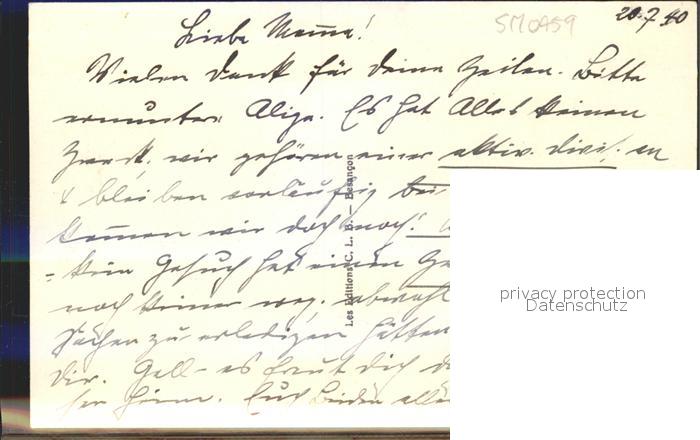 SM0459
20.7.40
Liebe Mama!
Vielen Dank für deine Zeilen. Bitte
ermuntere Alige. Es hat Alles keinen
Zweck, wir gehören einer aktiv. Divis. an
& bleiben vorläufig bei
kommen wir doch noch!
- Kein Gesuch hat einen
noch keiner weg, obwohl
Sachen zu erledigen hätten
Dir. Gell - es freut dich
Euch Beiden alles
Les Editions C. L. B. — Besançon
privacy protection
Datenschutz